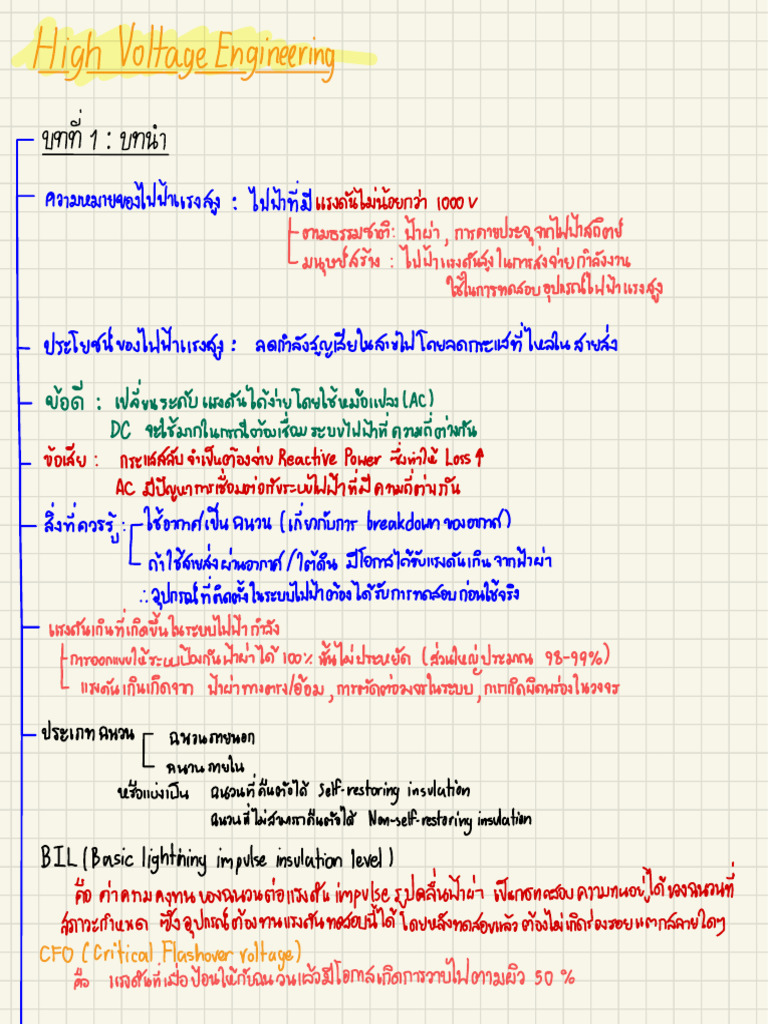 High Voltage Engineering
บทที่ 1 : บทนำ
ความหมายของไฟฟ้าแรงสูง : ไฟฟ้าที่มีแรงดันไม่น้อยกว่า 1000 V
ตามธรรมชาติ : ฟ้าผ่า , การคายประจุจากไฟฟ้าสถิตย์
มนุษย์สร้าง : ไฟฟ้าแรงดันสูงในการส่งจ่ายกำลังงาน
ใช้ในการทดสอบอุปกรณ์ไฟฟ้าแรงสูง
ประโยชน์ของไฟฟ้าแรงสูง : ลดกำลังสูญเสียในสายไฟโดยลดกระแสที่ไหลในสายส่ง
ข้อดี : เปลี่ยนระดับแรงดันได้ง่ายโดยใช้หม้อแปลง (AC)
DC จะใช้มากในกรณีต้องเชื่อมระบบไฟฟ้าที่ความถี่ต่างกัน
ข้อเสีย : กระแสสลับจำเป็นต้องจ่าย Reactive Power ซึ่งทำให้ Loss ↑
AC มีปัญหาการเชื่อมต่อกับระบบไฟฟ้าที่มีความถี่ต่างกัน
สิ่งที่ควรรู้ : ใช้อากาศเป็นฉนวน (เกี่ยวกับการ breakdown ของอากาศ)
ถ้าใช้สายส่งผ่านอากาศ / ใต้ดิน มีโอกาสได้รับแรงดันเกินจากฟ้าผ่า
∴ อุปกรณ์ที่ติดตั้งในระบบไฟฟ้าต้องได้รับการทดสอบก่อนใช้จริง
แรงดันเกินที่เกิดขึ้นในระบบไฟฟ้ากำลัง
การออกแบบให้ระบบป้องกันฟ้าผ่าได้ 100% นั้นไม่ประหยัด (ส่วนใหญ่ประมาณ 98-99%)
แรงดันเกินเกิดจาก ฟ้าผ่าทางตรง/อ้อม , การตัดต่อวงจรในระบบ , การเกิดผิดพร่องในวงจร
ประเภทฉนวน ฉนวนภายนอก
ฉนวนภายใน
หรือแบ่งเป็น ฉนวนที่คืนตัวได้ Self-restoring insulation
ฉนวนที่ไม่สามารถคืนตัวได้ Non-self-restoring insulation
BIL (Basic lightining impulse insulation level)
คือ ค่าความคงทนของฉนวนต่อแรงดัน impulse รูปคลื่นฟ้าผ่า เป็นการทดสอบความทนอยู่ได้ของฉนวนที่
สภาวะกำหนด ซึ่งอุปกรณ์ต้องทนแรงดันทดสอบนี้ได้ โดยหลังทดสอบแล้วต้องไม่เกิดร่องรอยแตกสลายใดๆ
CFO (Critical Flashover voltage)
คือ แรงดันที่เมื่อป้อนให้กับฉนวนแล้วมีโอกาสเกิดการวาบไฟตามผิว 50 %